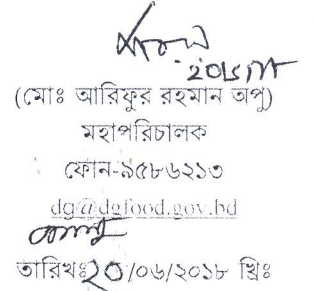 (মোঃ আরিফুর রহমান অপু)
মহাপরিচালক
ফোন-৯৫৮৬২১৩
dg@dgfood.gov.bd
তারিখঃ২০/০৬/২০১৮ খ্রিঃ